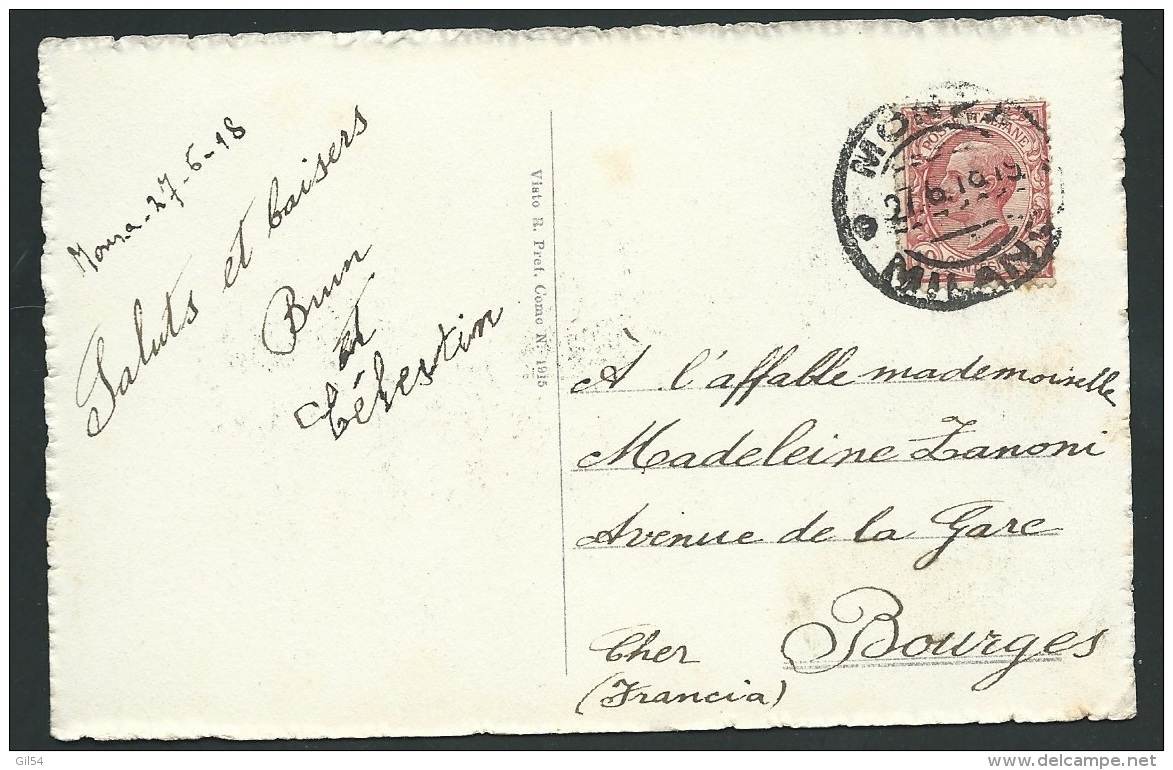 Monza - 27-6-18
Saluts et baisers
Brun
et
Célestin
Visto R. Pref. Como N. 1915
MONZA
27.6.18 19
MILANO
POSTE ITALIANE
A l'affable mademoiselle
Madeleine Zanoni
Avenue de la Gare
Bourges
Cher
(Francia)
Gil54
www.delcampe.net